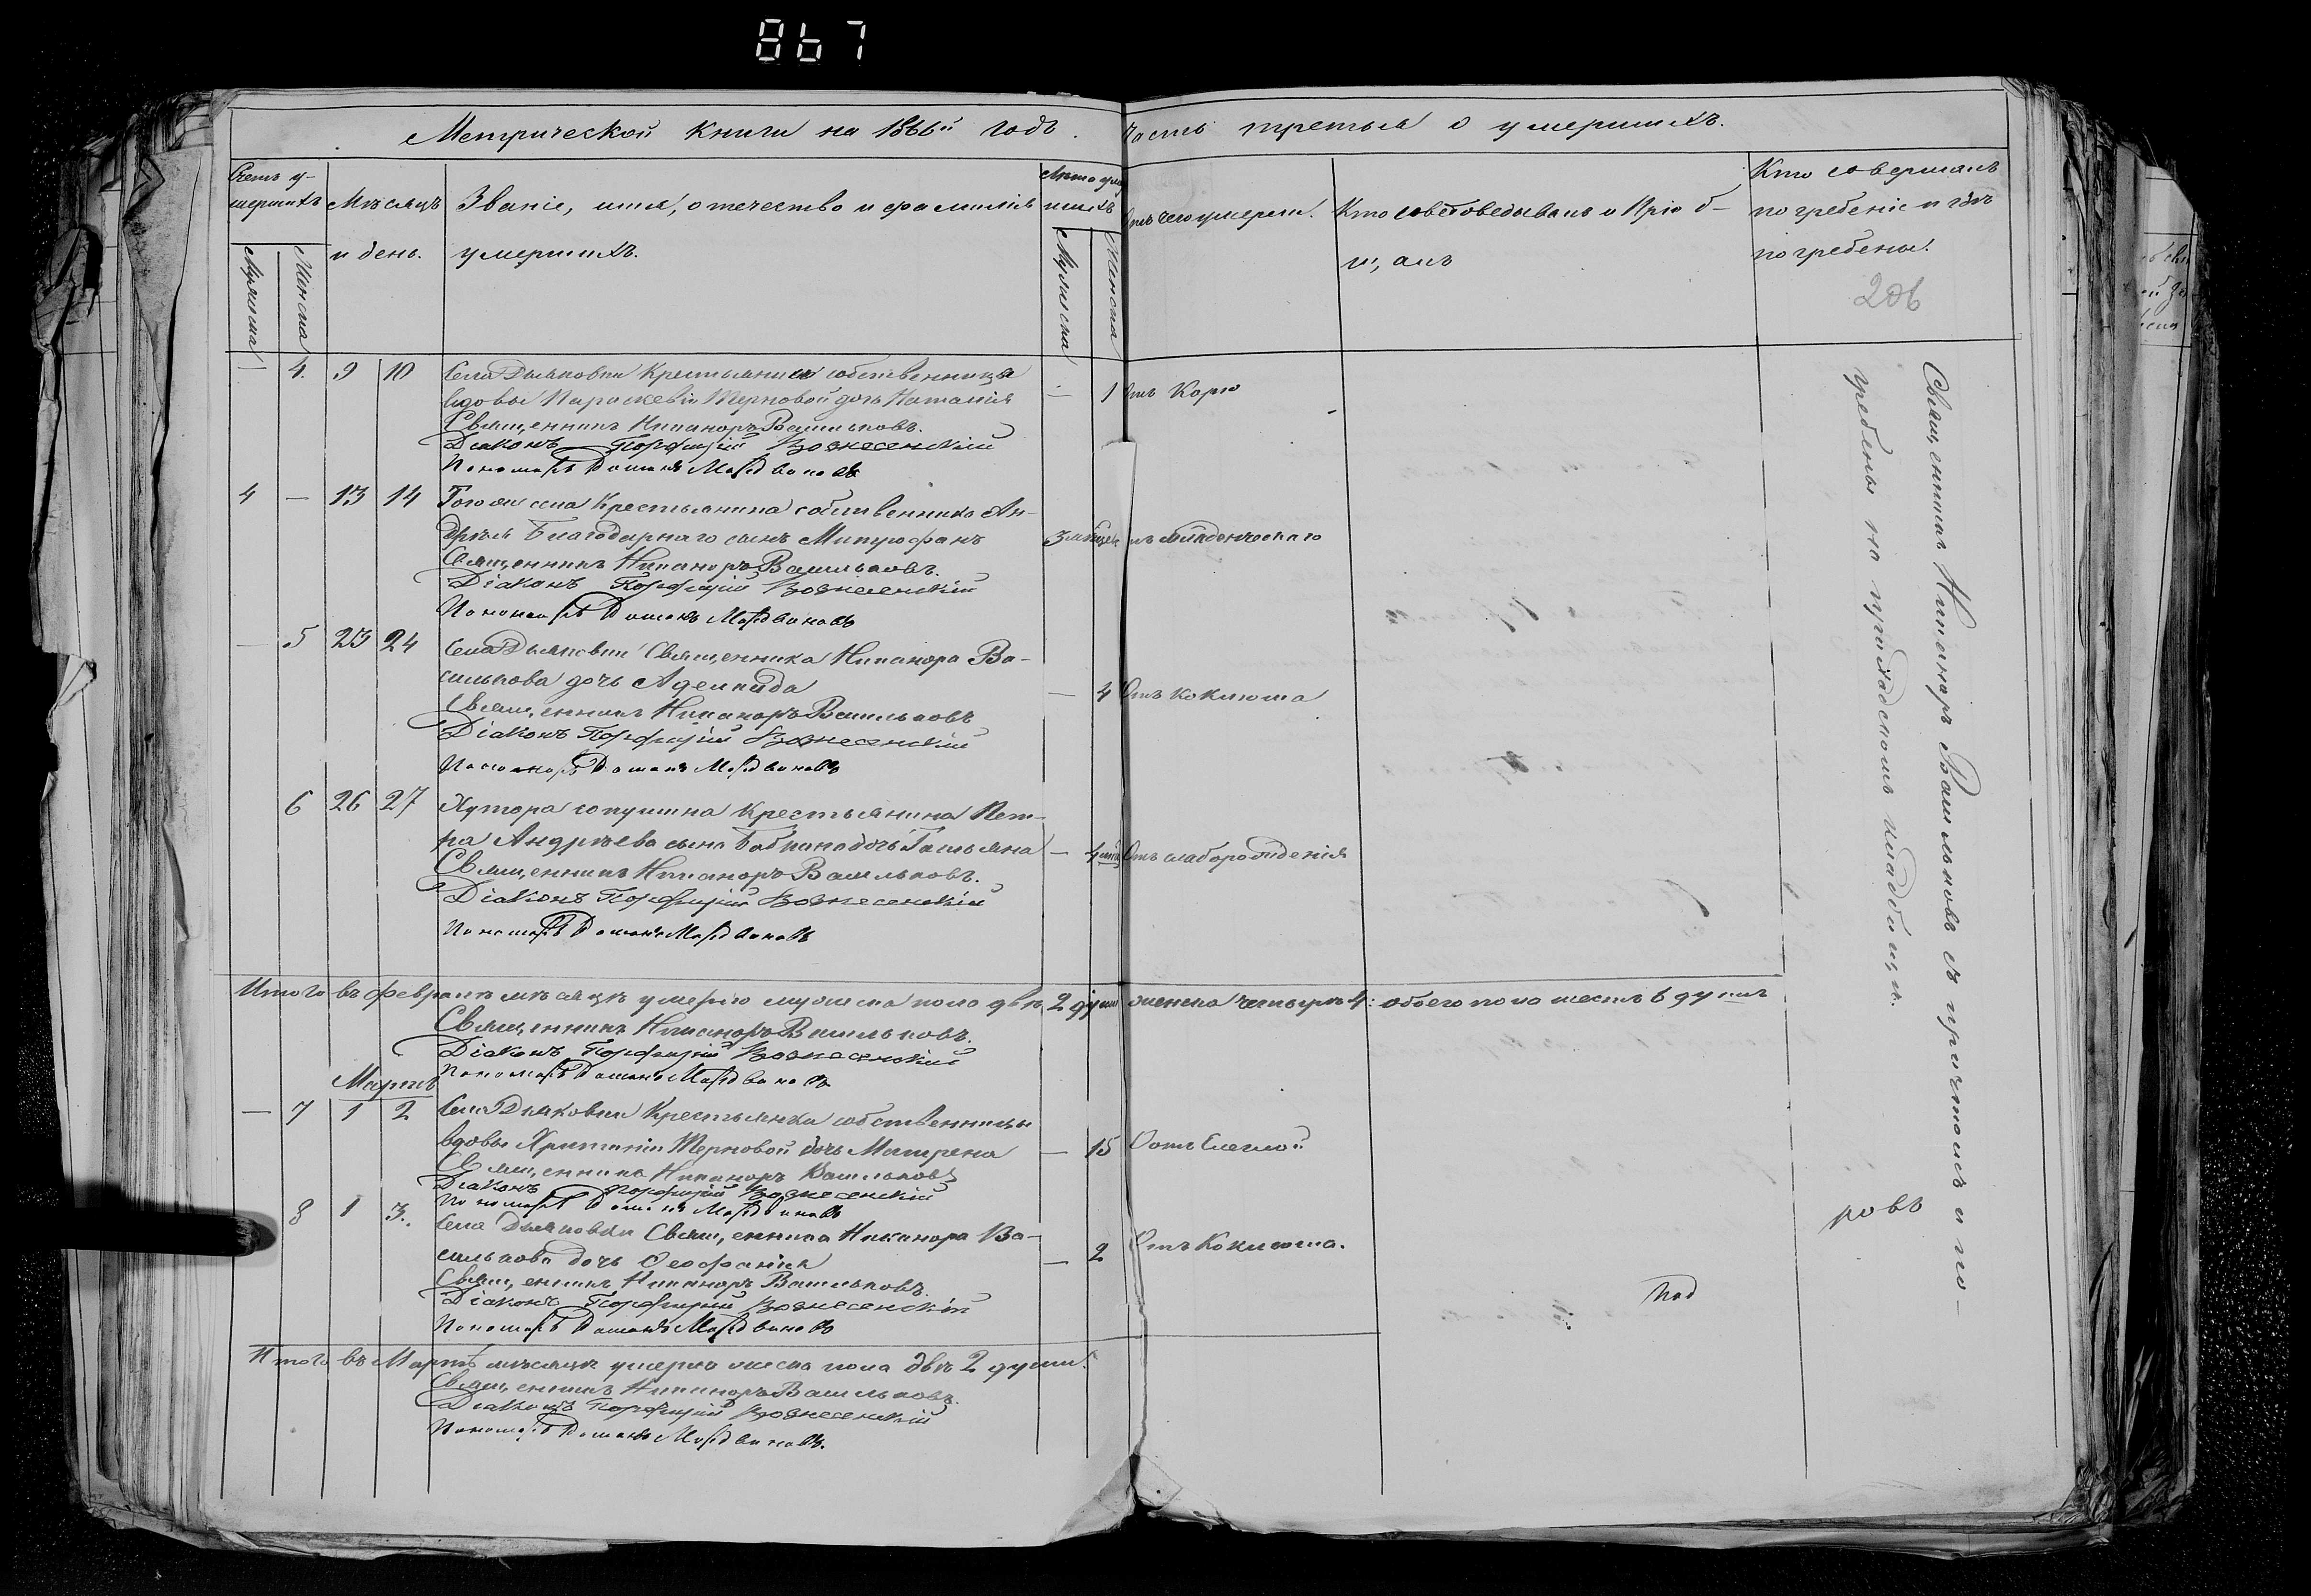 867
Метрической книги на 1866й годъ. Часть третья о умершихъ.
Счетъ у-
мершихъ
Мужеска
Женска
Мѣсяцъ
и день.
Званіе, имя, отечество и фамилія
умершихъ.
Лѣта умер
шихъ
Мужеска
Женска
Отъ чего умерли.
Кто исповедывалъ и Пріоб-
щалъ
Кто совершалъ
погребеніе и гдѣ
погребены.
206
— 4. 9 10 Села Дьяковки Крестьянки собственницы
вдовы Параскевіи Терновой дочь Наталія — 1 Отъ Корю
Священникъ Никаноръ Васильковъ.
Діаконъ Порфирій Вознесенскій
Пономарь Романъ Мордвиновъ
4 — 13 14 Того же села Крестьянина собственника Ан-
дрея Благодарнаго сынъ Митрофанъ 3 мѣсяц Отъ младенческаго
Священникъ Никаноръ Васильковъ.
Діаконъ Порфирій Вознесенскій
Пономарь Романъ Мордвиновъ
— 5 23 24 Села Дьяковки Священника Никанора Ва-
силькова дочь Аделаида — 4 Отъ коклюша
Священникъ Никаноръ Васильковъ
Діаконъ Порфирій Вознесенскій
Пономарь Романъ Мордвиновъ
6 26 27 Хутора Крестьянина Пет-
ра Андреева сына дочь Татьяна — 4 Отъ слаборожденія
Священникъ Никаноръ Васильковъ.
Діаконъ Порфирій Вознесенскій
Пономарь Романъ Мордвиновъ
Итого въ февралѣ мѣсяцѣ умерло мужеска пола двѣ 2 души женска четыре 4: обоего пола шесть 6 душъ
Священникъ Никаноръ Васильковъ.
Діаконъ Порфирій Вознесенскій
Пономарь Романъ Мордвиновъ
Мартъ
— 7 1 2 Села Дьяковки Крестьянки собственницы
вдовы Христиніи Терновой дочь Матрена — 15 Отъ
Священникъ Никаноръ Васильковъ
Діаконъ Порфирій Вознесенскій
Пономарь Романъ Мордвиновъ
8 1 3. Села Дьяковки Священника Никанора Ва-
силькова дочь Феофанія — 2 Отъ Коклюша.
Священникъ Никаноръ Васильковъ.
Діаконъ Порфирій Вознесенскій
Пономарь Романъ Мордвиновъ
Итого въ Мартѣ мѣсяцѣ умерло женска пола двѣ 2 души.
Священникъ Никаноръ Васильковъ.
Діаконъ Порфирій Вознесенскій
Пономарь Романъ Мордвиновъ.
Священникъ Никаноръ Васильковъ съ причтомъ и по-
гребены на приходскомъ кладбищѣ.
ровъ